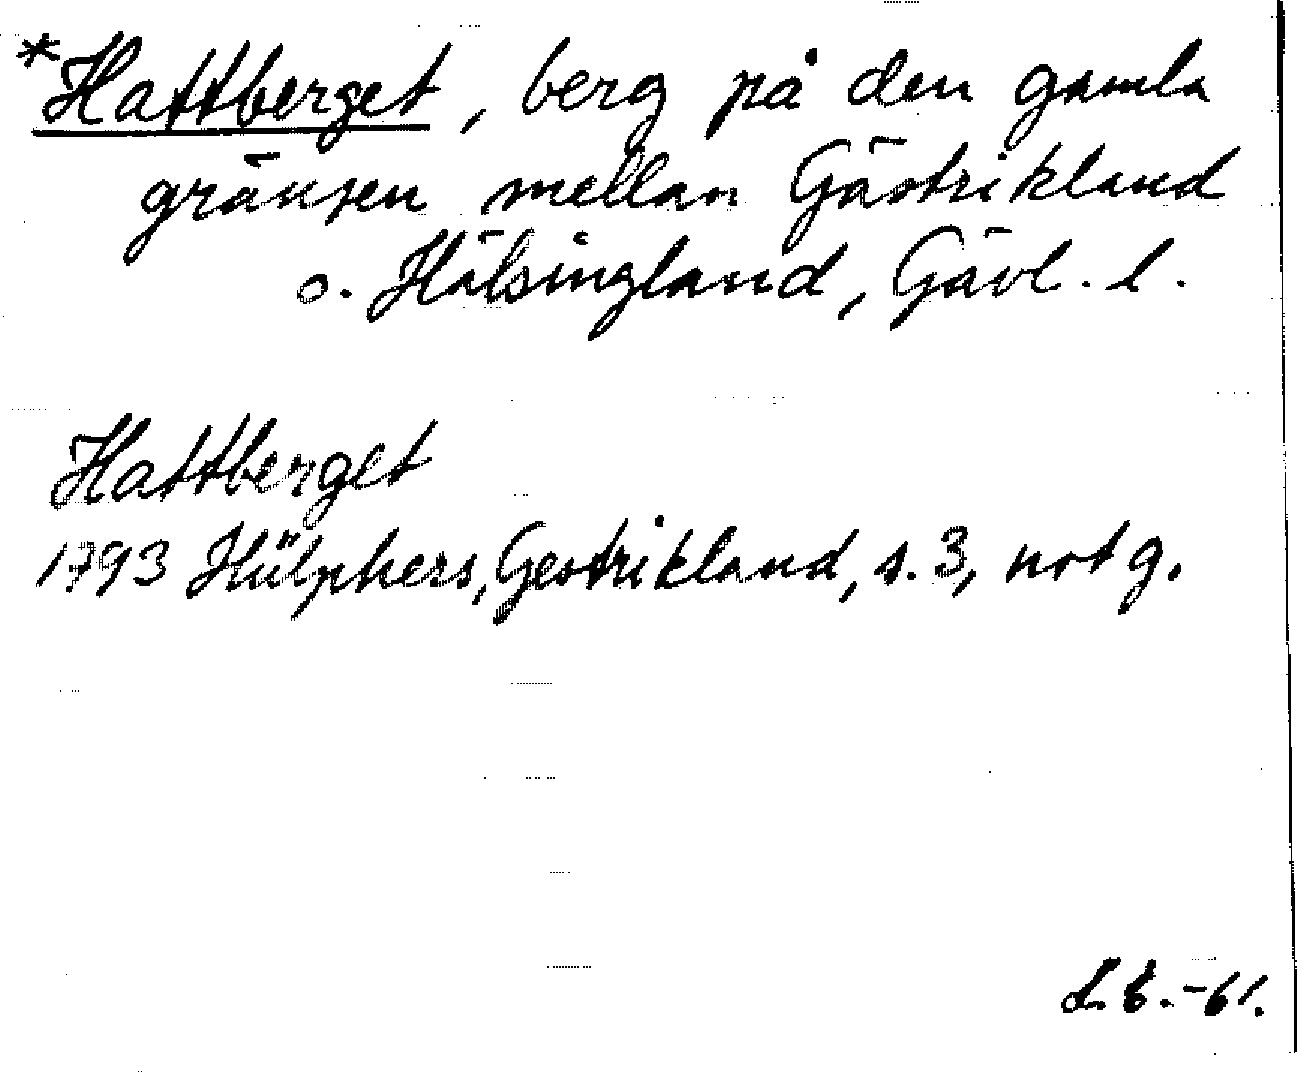 *Hattberget, berg på den gamla
gränsen mellan Gästrikland
o. Hälsingland, Gävl. l.
Hattberget
1793 Hülphers, Gestrikland, s. 3, not g.
-61.